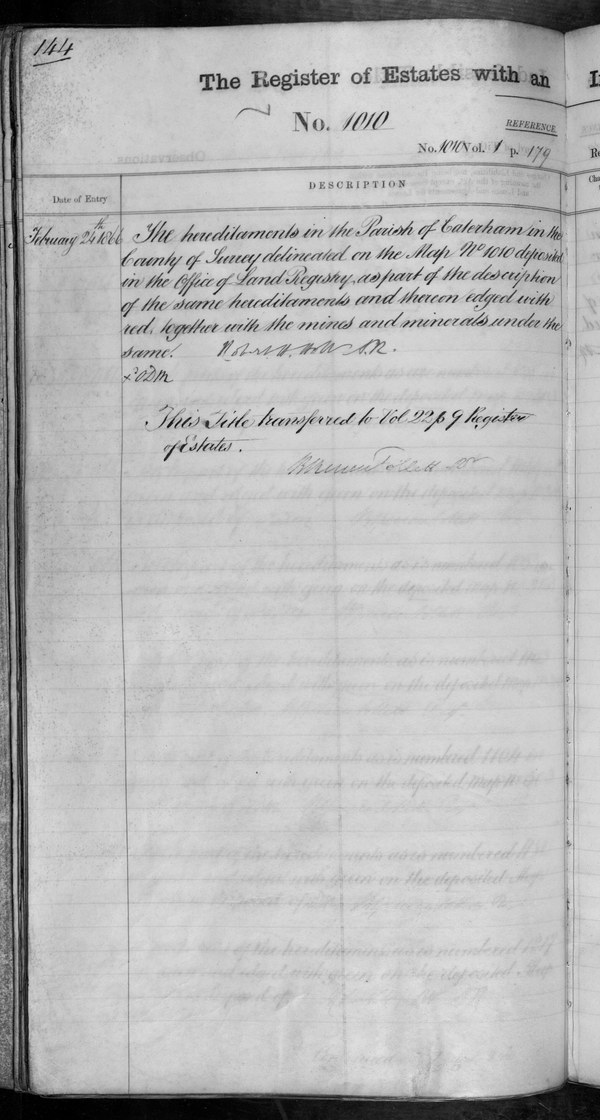 144
The Register of Estates with an
No. 1010
REFERENCE.
No. 1010 Vol. 1 p. 179
DESCRIPTION
Date of Entry
February 24th 1866
The hereditaments in the Parish of Caterham in the
County of Surrey delineated on the Map No 1010 deposited
in the Office of Land Registry, as part of the description
of the same hereditaments and thereon edged with
red, together with the mines and minerals under the
same.
This Title transferred to Vol 22 p 9 Register
of Estates.